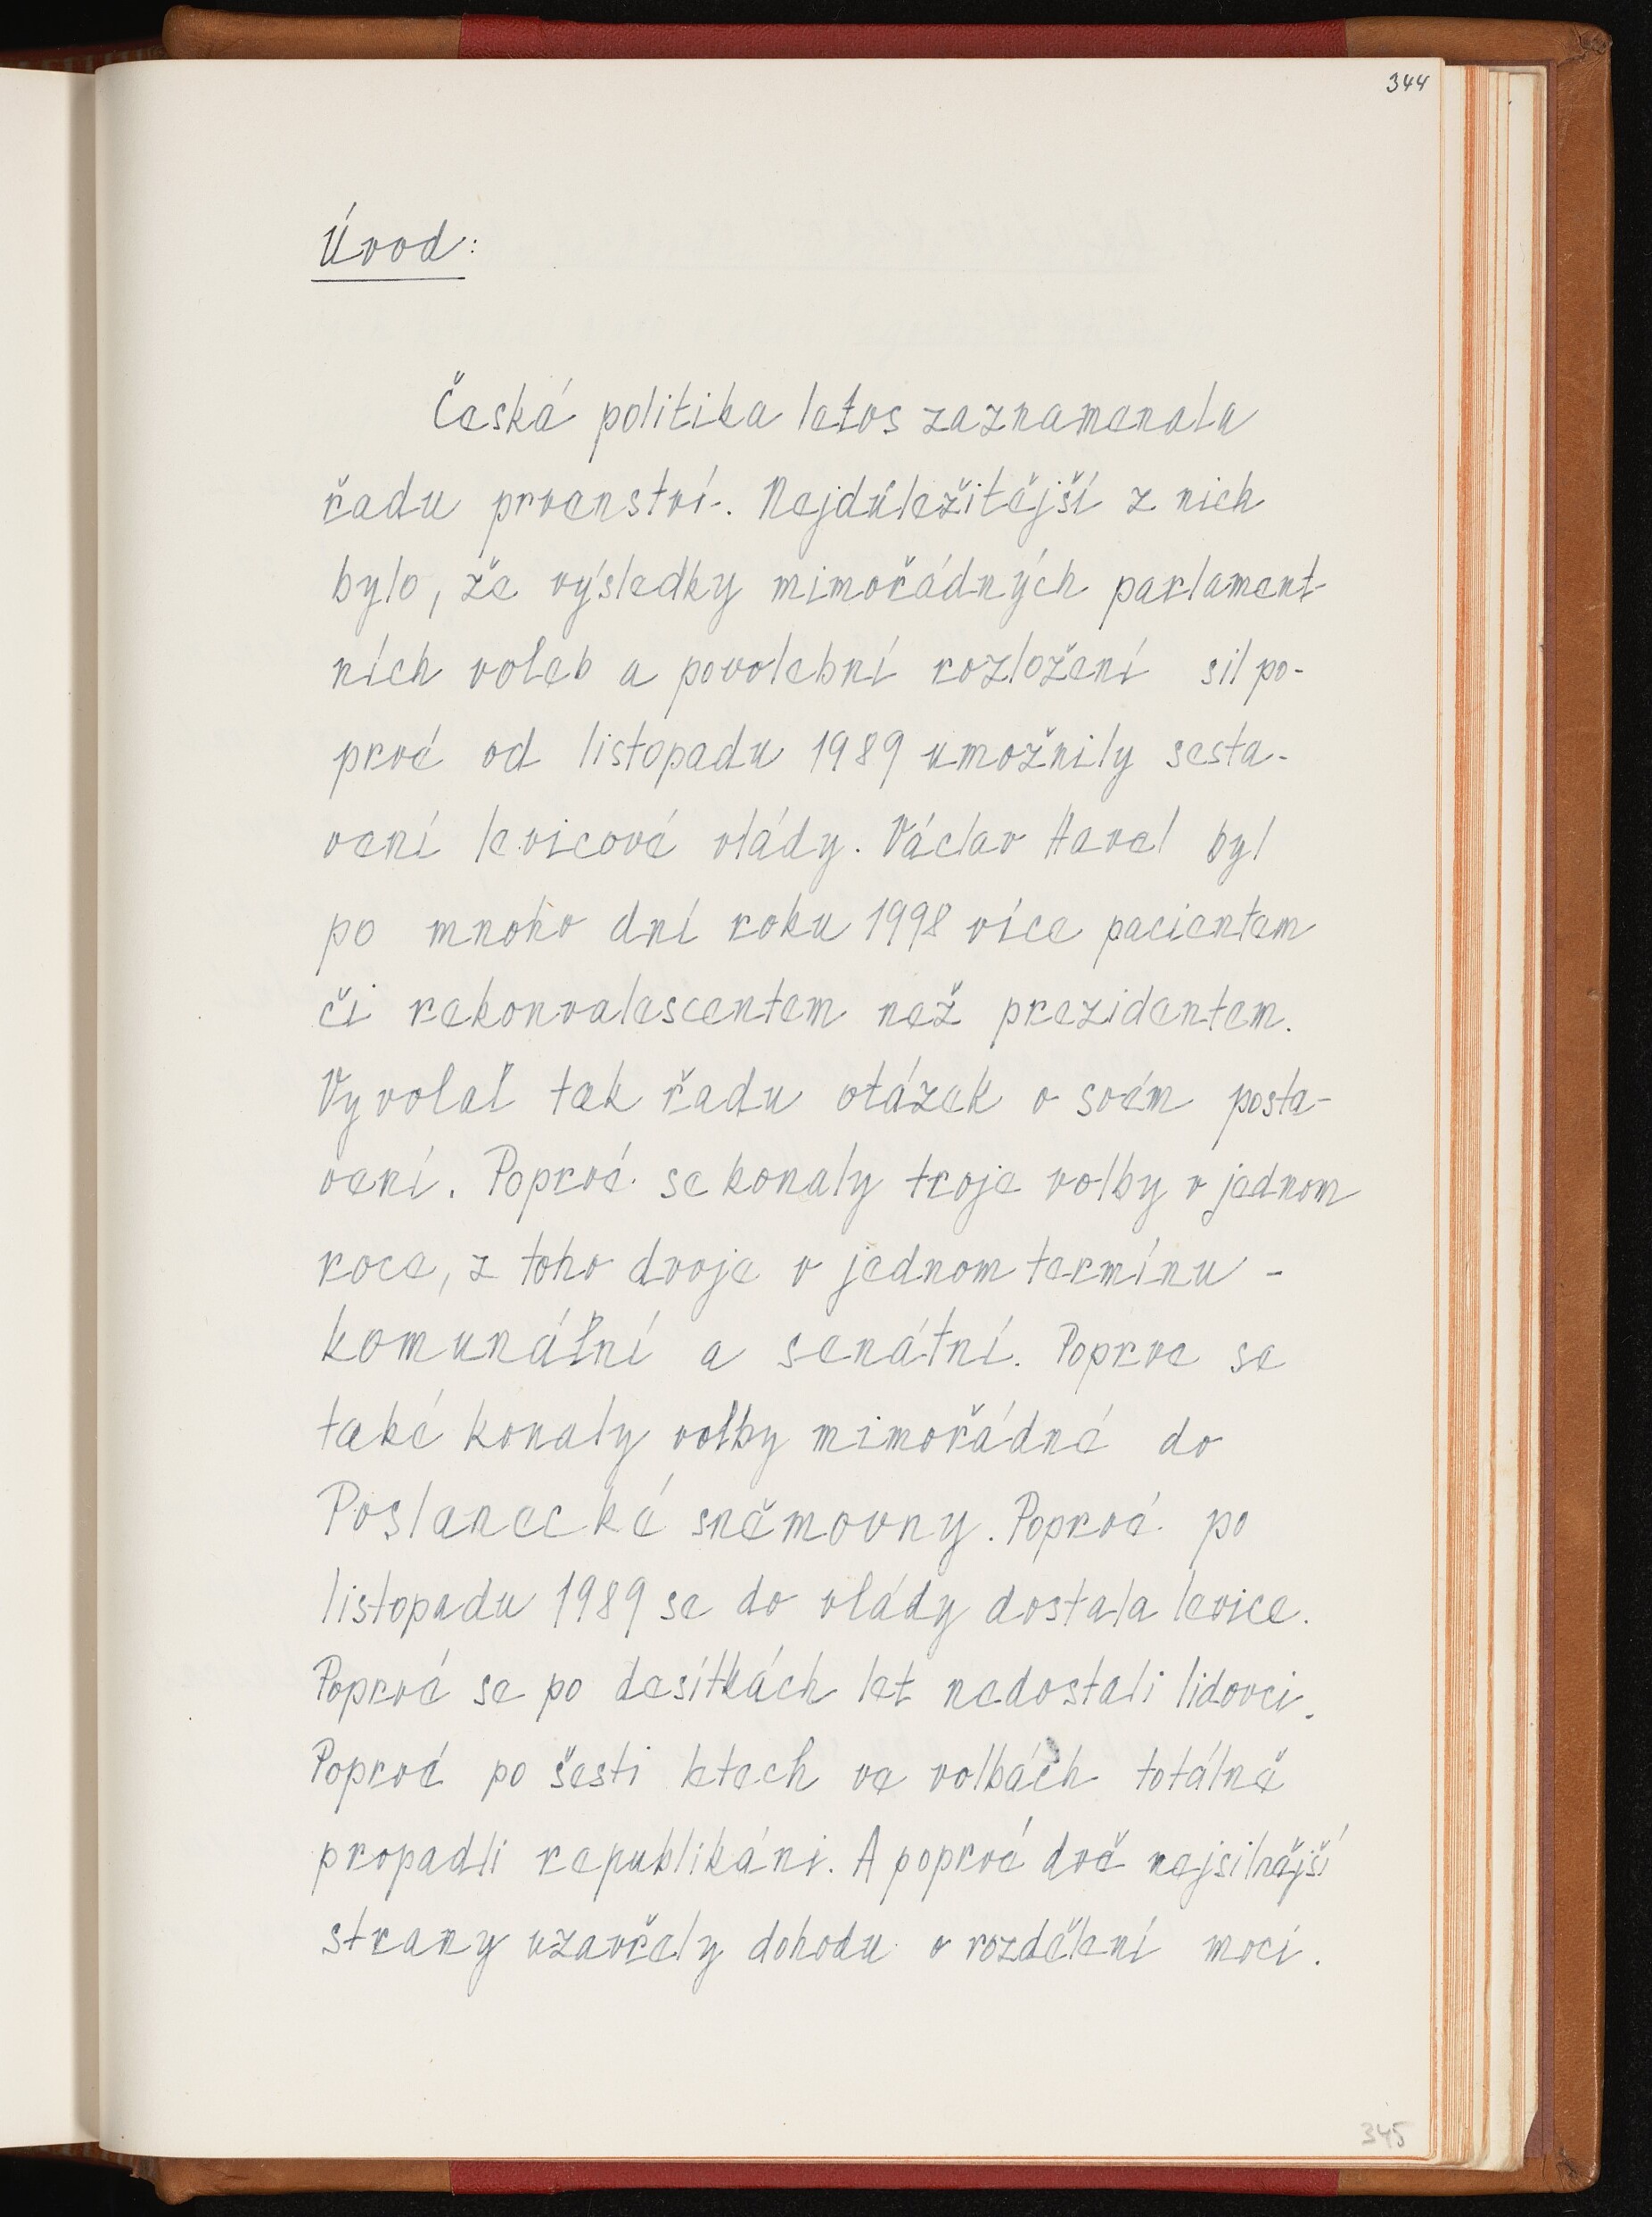 344
Úvod:
Česká politika letos zaznamenala
řadu prvenství. Nejdůležitější z nich
bylo, že výsledky mimořádných parlament-
ních voleb a povolební rozložení sil po-
prvé od listopadu 1989 umožnily sesta-
vení levicové vlády. Václav Havel byl
po mnoho dní roku 1998 více pacientem
či rekonvalescentem než prezidentem.
Vyvolal tak řadu otázek o svém posta-
vení. Poprvé se konaly troje volby v jednom
roce, z toho dvoje v jednom termínu -
komunální a senátní. Poprve se
také konaly volby mimořádné do
Poslanecké sněmovny. Poprvé po
listopadu 1989 se do vlády dostala levice.
Poprvé se po desítkách let nedostali lidovci.
Poprvé po šesti letech ve volbách totálně
propadli republikáni. A poprvé dvě nejsilnější
strany uzavřely dohodu o rozdělení moci.
345